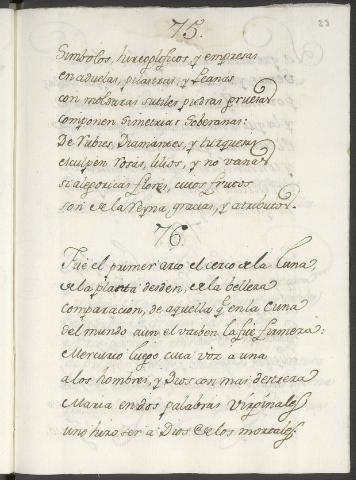 75.
Simbolos, hieroglificos, y empresas
en aduelas, pilastras, y Leanas
con molduras sutiles piedras gruesas
componen Simetrias Soberanas:
De Rubies, Diamantes, y turquesas
esculpen rosas, lilios, y no vanas
si alegoricas flores, cuios frutos
son de la Reyna, gracias, y atributos.
76.
Fue el primer arco el cerco de la Luna,
de la planta desden, de la belleza
comparacion, de aquella q en la Cuna
del mundo aun el vaiben la fue firmeza:
Mercurio luego, cuia voz a una
a los hombres, y Dios con mas destreza
Maria en dos palabras virginales
uno hizo ser a Dios de los mortales.